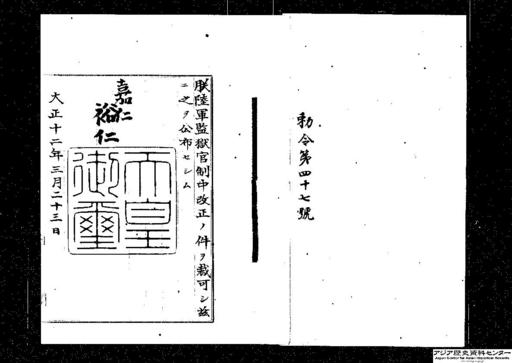 勅令第四十七號
朕陸軍監獄官制中改正ノ件ヲ裁可シ玆
ニ之ヲ公布セシム
嘉仁
裕仁
天皇御璽
大正十二年三月二十三日
アジア歴史資料センター
Japan Center for Asian Historical Records